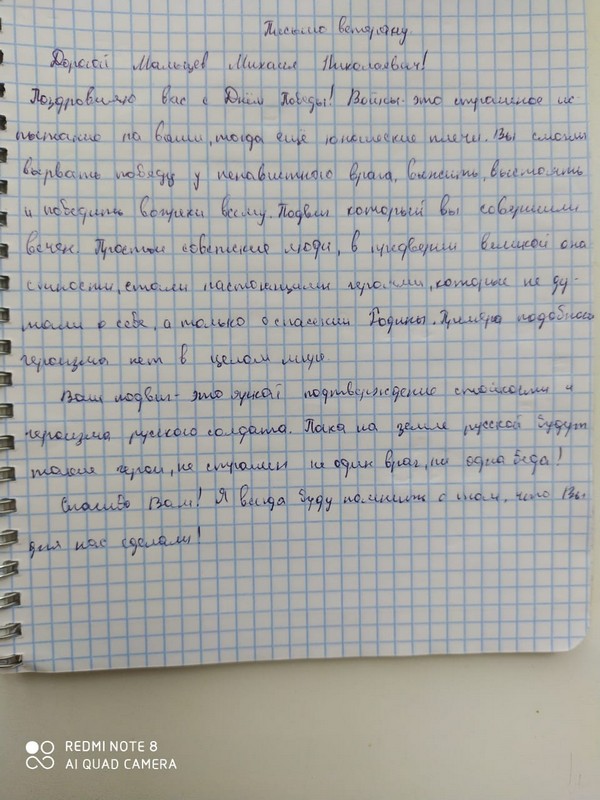 Письмо ветерану
Дорогой Мальцев Михаил Николаевич!
Поздравляю вас с Днём Победы! Войны-это страшное ис-
пытание на ваши, тогда ещё юношеские плечи. Вы смогли
вырвать победу у ненавистного врага, выжить, выстоять
и победить вопреки всему. Подвиг который вы совершили
вечен. Простые советские люди, в преддверии великой опа
сности, стали настоящими героями, которые не ду-
мали о себе, а только о спасении Родины. Примера подобного
героизма нет в целом мире.
Ваш подвиг- это яркое подтверждение стойкости и
героизма русского солдата. Пока на земле русской будут
такие герои, не страшен не один враг, ни одна беда!
Спасибо Вам! Я всегда буду помнить о том, что Вы
для нас сделали!
REDMI NOTE 8
AI QUAD CAMERA